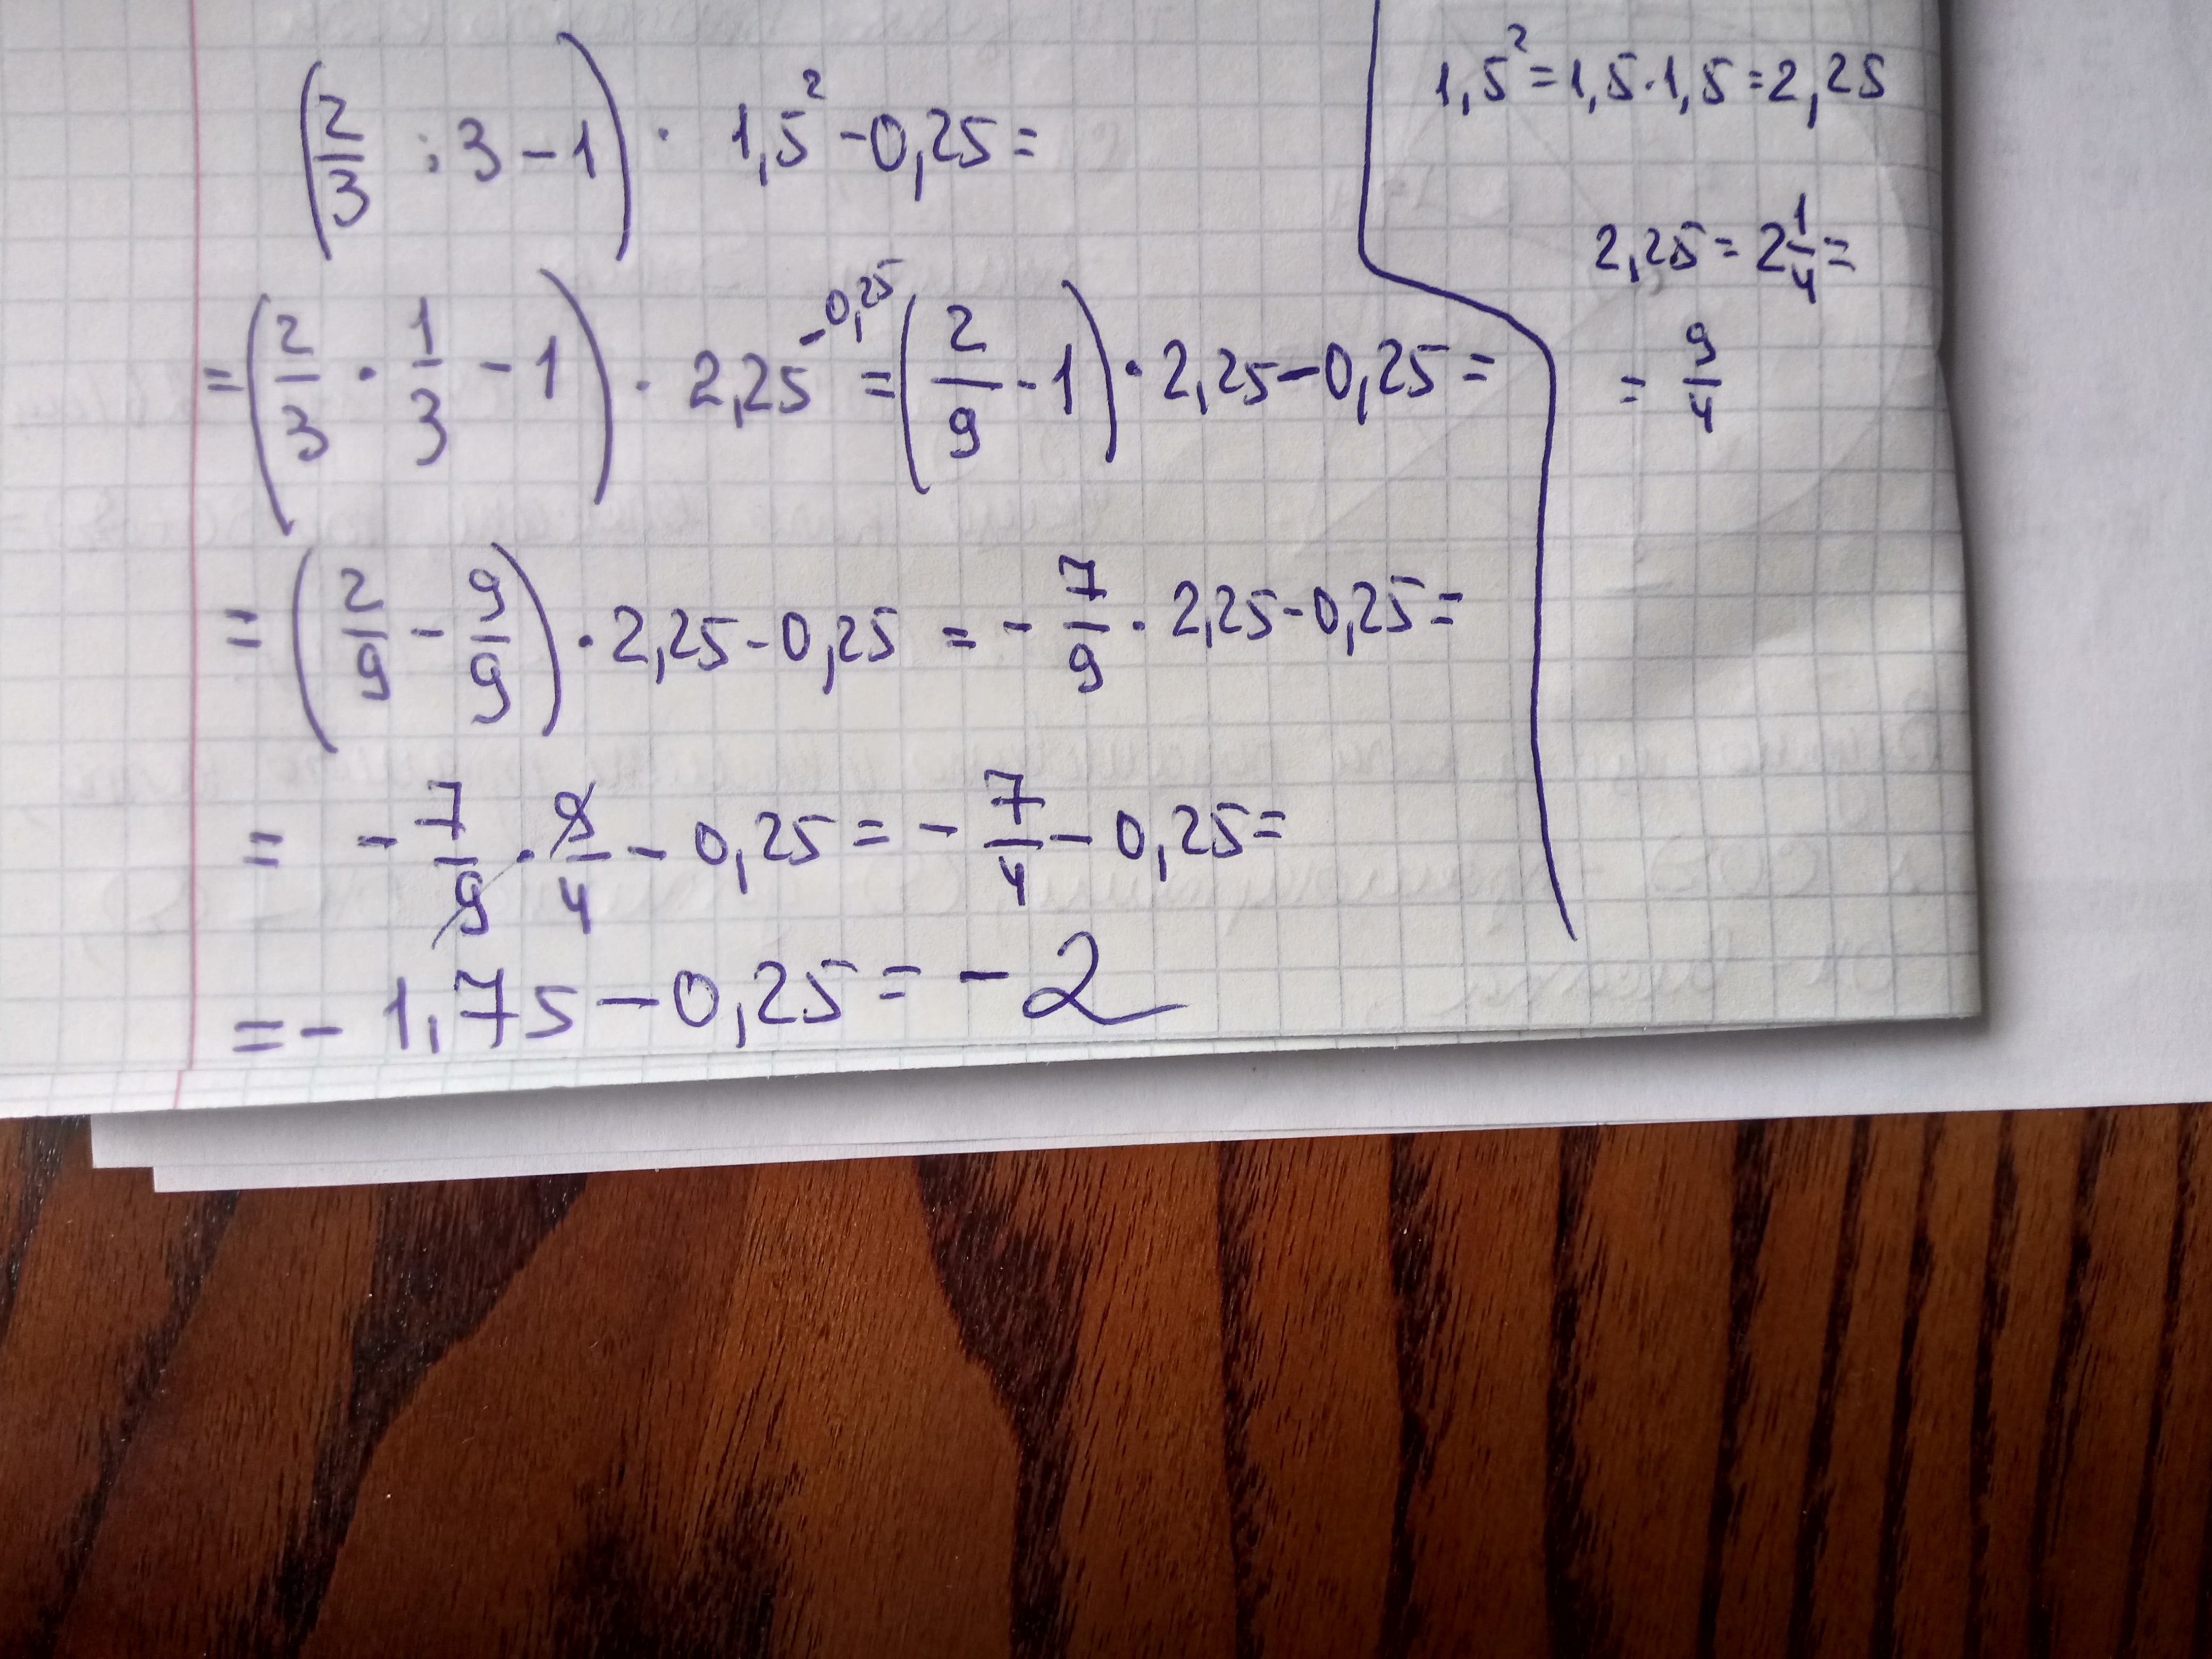 (2/3 : 3 - 1) · 1,5² - 0,25 =
= (2/3 · 1/3 - 1) · 2,25 - 0,25 = (2/9 - 1) · 2,25 - 0,25 =
= (2/9 - 9/9) · 2,25 - 0,25 = - 7/9 · 2,25 - 0,25 =
= - 7/9 · 9/4 - 0,25 = - 7/4 - 0,25 =
= - 1,75 - 0,25 = - 2
1,5² = 1,5 · 1,5 = 2,25
2,25 = 2 1/4 =
= 9/4